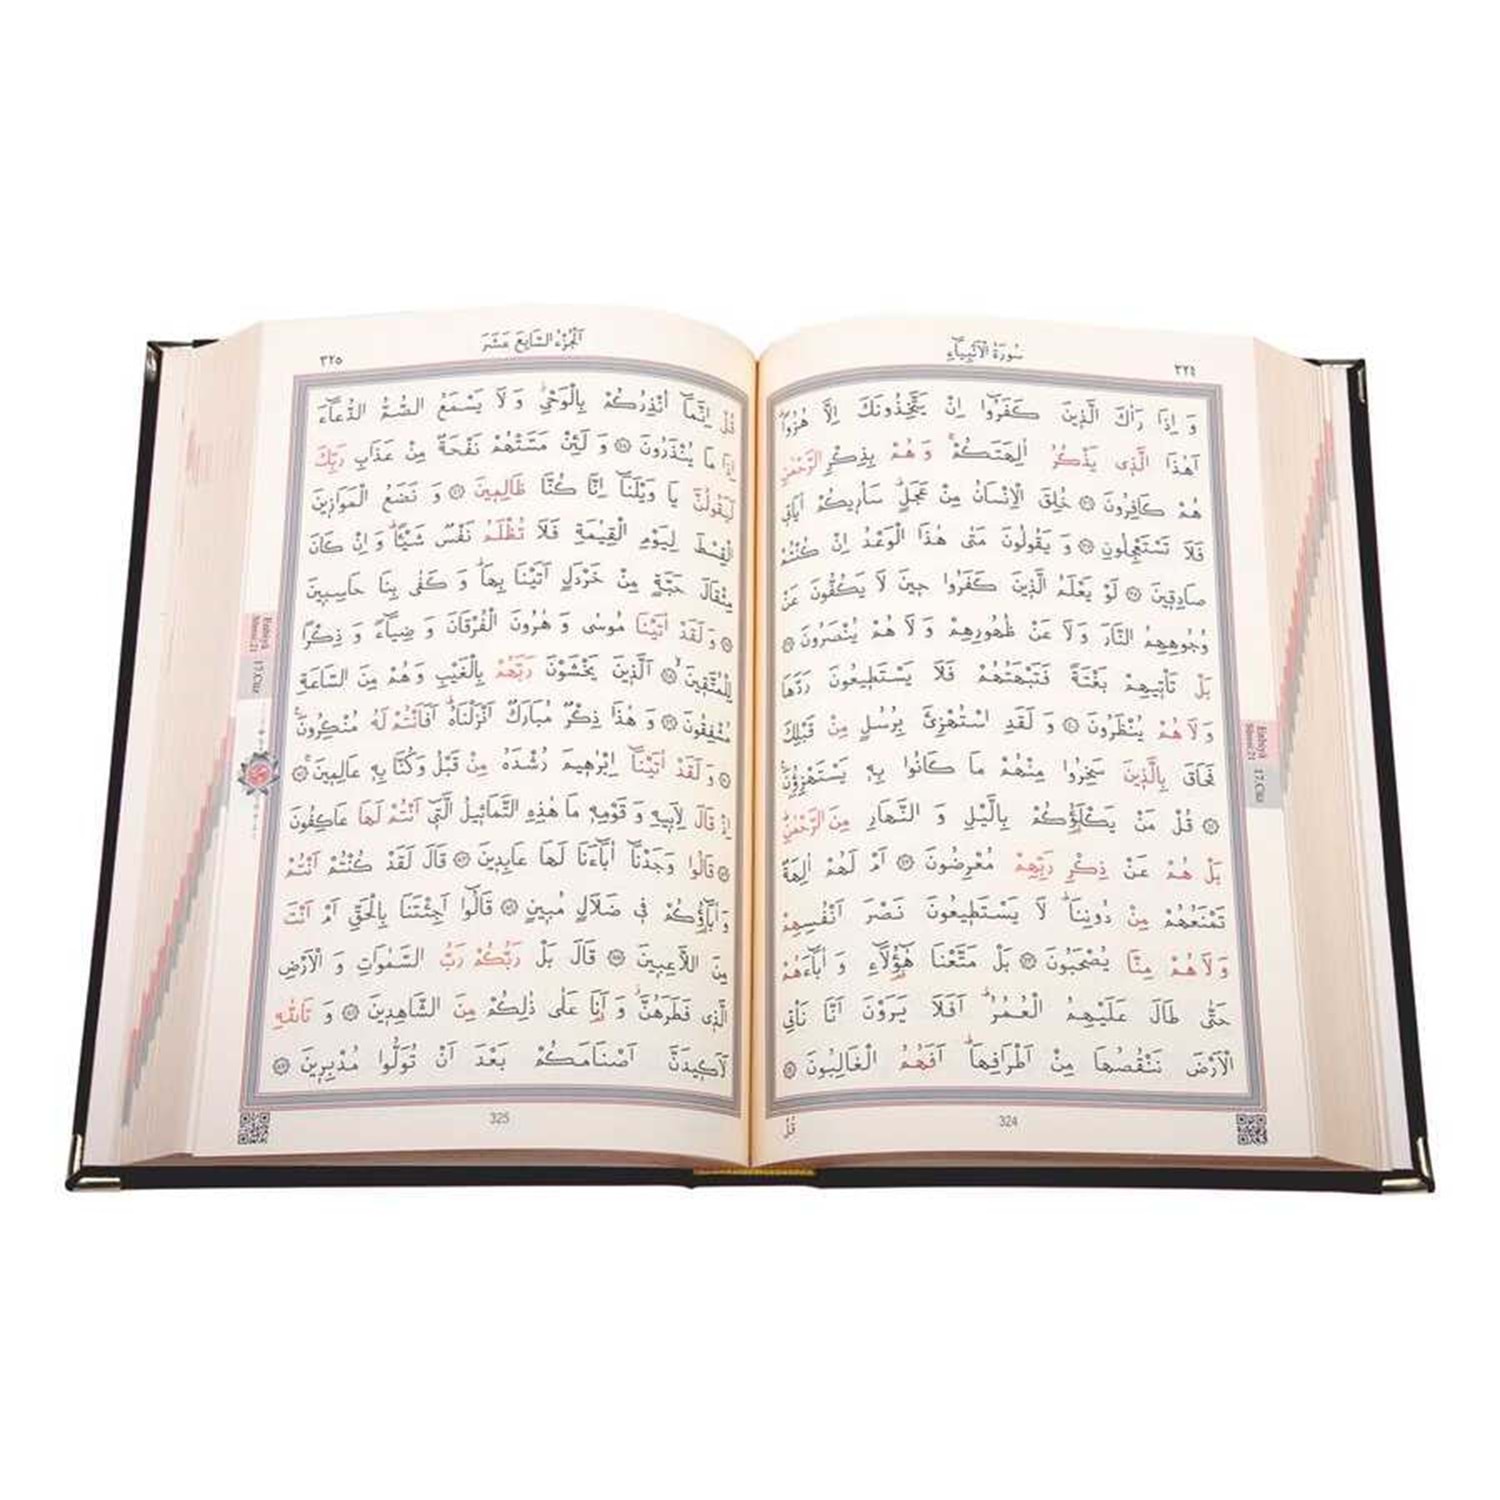 سُورَةُ الْاَنْبِيَٓاءِ
٣٢٤
وَ اِذَا رَاٰكَ الَّذِينَ كَفَرُٓوا اِنْ يَتَّخِذُونَكَ اِلَّا هُزُوًا
اَهٰذَا الَّذِى يَذْكُرُ اٰلِهَتَكُمْۚ وَ هُمْ بِذِكْرِ الرَّحْمٰنِ
هُمْ كَافِرُونَ ۝ خُلِقَ الْاِنْسَانُ مِنْ عَجَلٍۜ سَاُرِيكُمْ اٰيَاتِى
فَلَا تَسْتَعْجِلُونِ ۝ وَ يَقُولُونَ مَتٰى هٰذَا الْوَعْدُ اِنْ كُنْتُمْ
صَادِقِينَ ۝ لَوْ يَعْلَمُ الَّذِينَ كَفَرُوا حِينَ لَا يَكُفُّونَ عَنْ
وُجُوهِهِمُ النَّارَ وَ لَا عَنْ ظُهُورِهِمْ وَ لَا هُمْ يُنْصَرُونَ ۝
بَلْ تَأْتِيهِمْ بَغْتَةً فَتَبْهَتُهُمْ فَلَا يَسْتَطِيعُونَ رَدَّهَا
وَ لَا هُمْ يُنْظَرُونَ ۝ وَ لَقَدِ اسْتُهْزِئَ بِرُسُلٍ مِنْ قَبْلِكَ
فَحَاقَ بِالَّذِينَ سَخِرُوا مِنْهُمْ مَا كَانُوا بِهِ يَسْتَهْزِؤُنَ۟
۝ قُلْ مَنْ يَكْلَؤُ۬كُمْ بِالَّيْلِ وَ النَّهَارِ مِنَ الرَّحْمٰنِۜ
بَلْ هُمْ عَنْ ذِكْرِ رَبِّهِمْ مُعْرِضُونَ ۝ اَمْ لَهُمْ اٰلِهَةٌ
تَمْنَعُهُمْ مِنْ دُونِنَاۜ لَا يَسْتَطِيعُونَ نَصْرَ اَنْفُسِهِمْ
وَ لَا هُمْ مِنَّا يُصْحَبُونَ ۝ بَلْ مَتَّعْنَا هٰٓؤُ۬لَٓاءِ وَ اٰبَٓاءَهُمْ
حَتّٰى طَالَ عَلَيْهِمُ الْعُمُرُۜ اَفَلَا يَرَوْنَ اَنَّا نَأْتِى
الْاَرْضَ نَنْقُصُهَا مِنْ اَطْرَافِهَاۜ اَفَهُمُ الْغَالِبُونَ ۝
قُلْ
324
Enbiyâ
Sûresi:21
17.Cüz
اَلْجُزْءُ السَّابِعَ عَشَرَ
٣٢٥
قُلْ اِنَّمَٓا اُنْذِرُكُمْ بِالْوَحْيِۘ وَ لَا يَسْمَعُ الصُّمُّ الدُّعَٓاءَ
اِذَا مَا يُنْذَرُونَ ۝ وَ لَئِنْ مَسَّتْهُمْ نَفْحَةٌ مِنْ عَذَابِ رَبِّكَ
لَيَقُولُنَّ يَا وَيْلَنَٓا اِنَّا كُنَّا ظَالِمِينَ ۝ وَ نَضَعُ الْمَوَازِينَ
الْقِسْطَ لِيَوْمِ الْقِيٰمَةِ فَلَا تُظْلَمُ نَفْسٌ شَيْـًٔاۜ وَ اِنْ كَانَ
مِثْقَالَ حَبَّةٍ مِنْ خَرْدَلٍ اَتَيْنَا بِهَاۜ وَ كَفٰى بِنَا حَاسِبِينَ
۝ وَ لَقَدْ اٰتَيْنَا مُوسٰى وَ هٰرُونَ الْفُرْقَانَ وَ ضِيَٓاءً وَ ذِكْرًا
لِلْمُتَّقِينَۙ ۝ اَلَّذِينَ يَخْشَوْنَ رَبَّهُمْ بِالْغَيْبِ وَ هُمْ مِنَ السَّاعَةِ
مُشْفِقُونَ ۝ وَ هٰذَا ذِكْرٌ مُبَارَكٌ اَنْزَلْنَاهُۜ اَفَاَنْتُمْ لَهُ مُنْكِرُونَ۟
۝ وَ لَقَدْ اٰتَيْنَٓا اِبْرٰهِيمَ رُشْدَهُ مِنْ قَبْلُ وَ كُنَّا بِهِ عَالِمِينَۚ ۝
اِذْ قَالَ لِاَبِيهِ وَ قَوْمِهِ مَا هٰذِهِ التَّمَاثِيلُ الَّتِٓى اَنْتُمْ لَهَا عَاكِفُونَ
۝ قَالُوا وَجَدْنَٓا اٰبَٓاءَنَا لَهَا عَابِدِينَ ۝ قَالَ لَقَدْ كُنْتُمْ اَنْتُمْ
وَ اٰبَٓاؤُ۬كُمْ فِى ضَلَالٍ مُبِينٍ ۝ قَالُٓوا اَجِئْتَنَا بِالْحَقِّ اَمْ اَنْتَ
مِنَ اللَّاعِبِينَ ۝ قَالَ بَلْ رَبُّكُمْ رَبُّ السَّمٰوَاتِ وَ الْاَرْضِ
الَّذِى فَطَرَهُنَّۘ وَ اَنَا عَلٰى ذٰلِكُمْ مِنَ الشَّاهِدِينَ ۝ وَ تَاللّٰهِ
لَاَكِيدَنَّ اَصْنَامَكُمْ بَعْدَ اَنْ تُوَلُّوا مُدْبِرِينَ ۝
325
Enbiyâ
Sûresi:21
17.Cüz